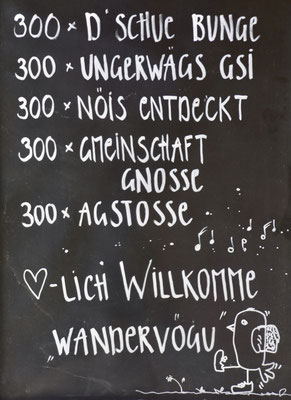 300 × D'SCHUE BUNGE
300 × UNGERWÄGS GSI
300 × NÖIS ENTDECKT
300 × GMEINSCHAFT
GNOSSE
300 × AGSTOSSE
♡-LICH WILLKOMME
"WANDERVÖGU"